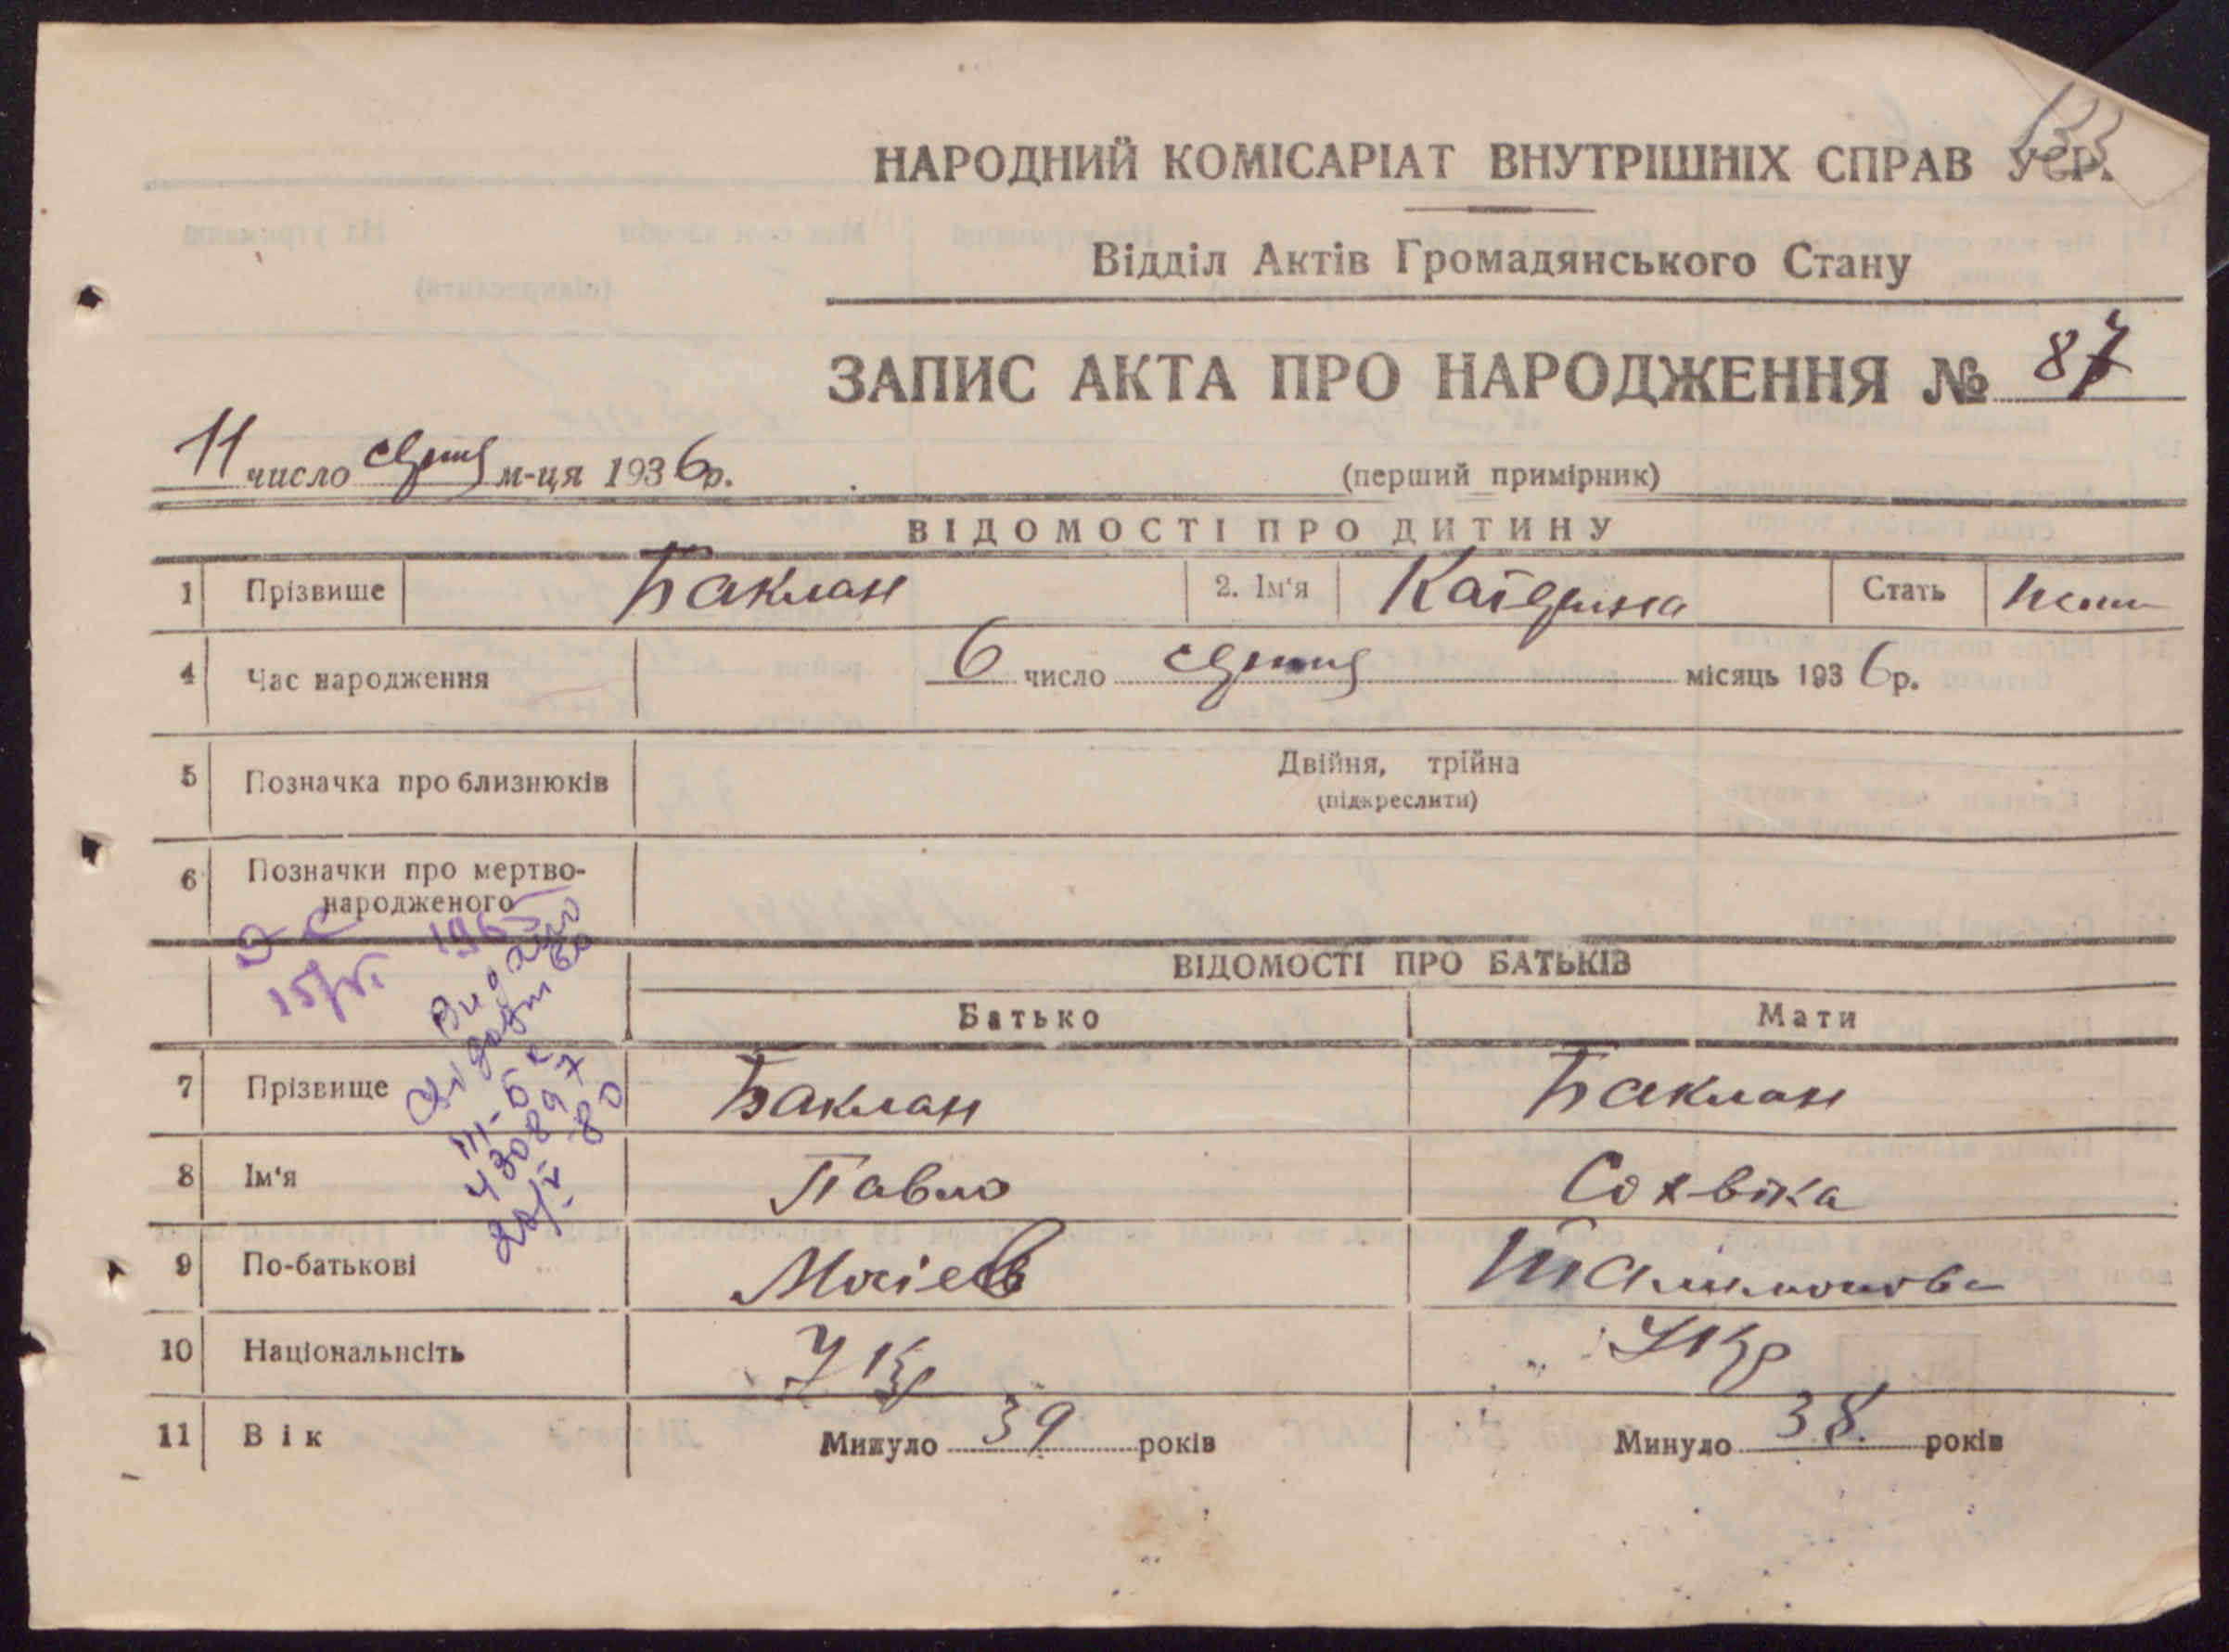 133
НАРОДНИЙ КОМІСАРІАТ ВНУТРІШНІХ СПРАВ УСР.
Відділ Актів Громадянського Стану
ЗАПИС АКТА ПРО НАРОДЖЕННЯ № 87
11 число серпня м-ця 1936р.
(перший примірник)
ВІДОМОСТІ ПРО ДИТИНУ
1 Прізвище Баклан 2. Ім'я Катерина Стать
4 Час народження 6 число серпня місяць 1936р.
5 Позначка про близнюків Двійня, трійна
(підкреслити)
6 Позначки про мертво-
народженого
1965
Видано
ІІІ-БК
430897
80
ВІДОМОСТІ ПРО БАТЬКІВ
Батько Мати
7 Прізвище Баклан Баклан
8 Ім'я Павло
9 По-батькові Мосієв
10 Національнсіть Укр Укр
11 Вік Минуло 39 років Минуло 38. років